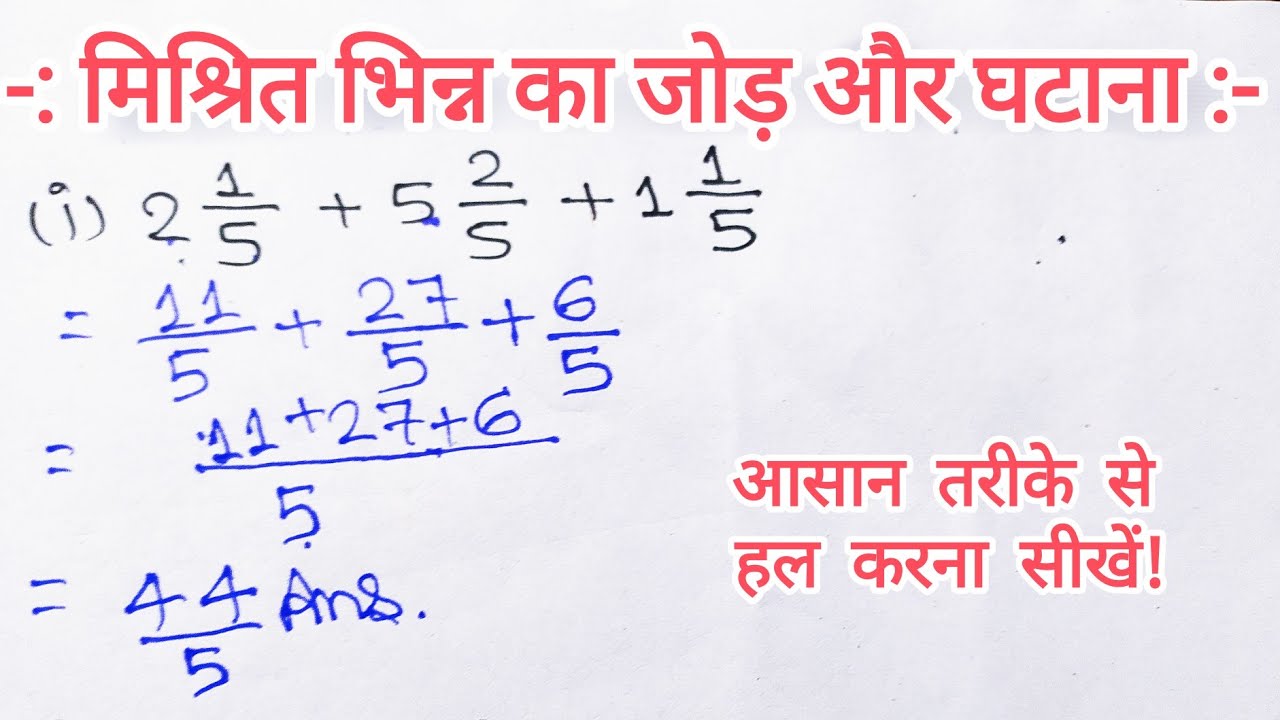 -: मिश्रित भिन्न का जोड़ और घटाना :-
(i) 2 1/5 + 5 2/5 + 1 1/5
= 11/5 + 27/5 + 6/5
= 11+27+6/5
= 44/5 Ans.
आसान तरीके से
हल करना सीखें!